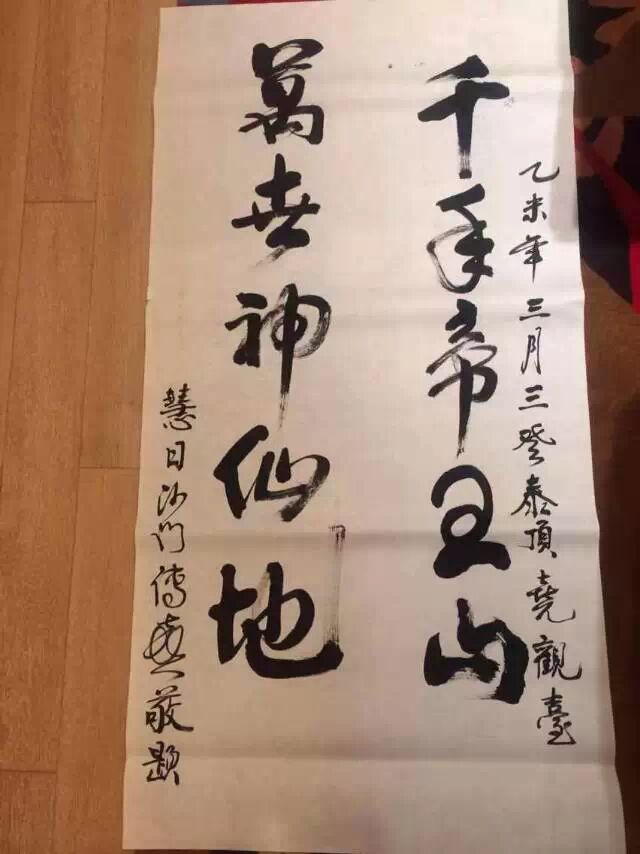 乙未年三月三登泰頂堯觀臺
千年帝王山
萬世神仙地
慧日沙門傳喜敬題